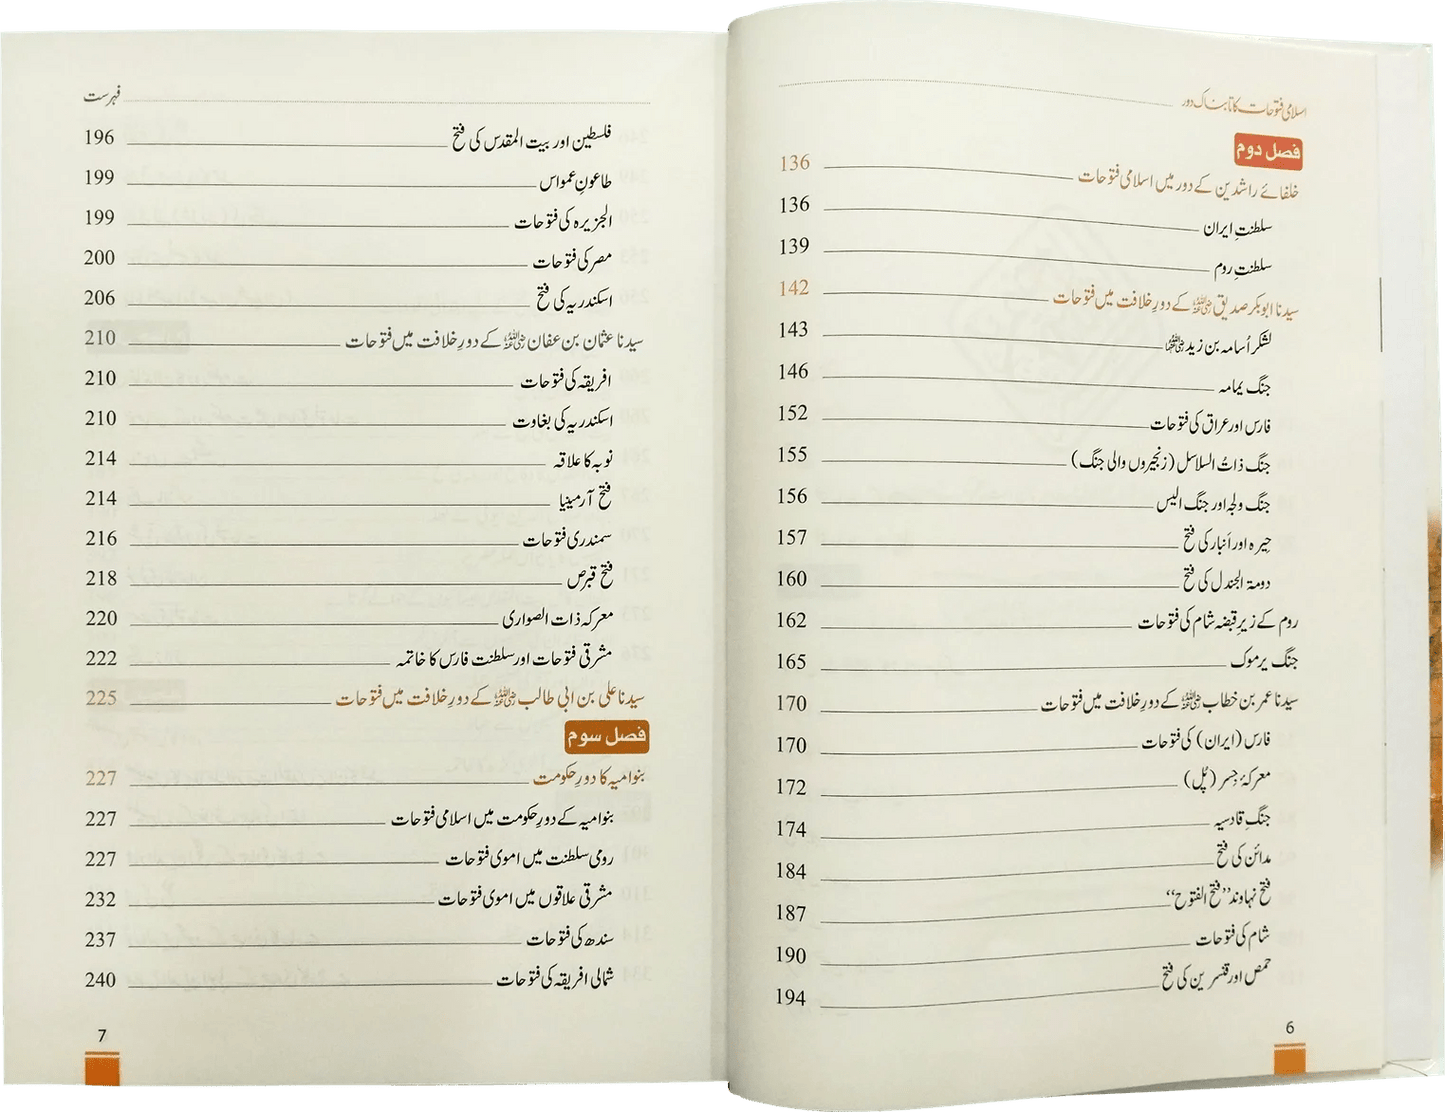 اسلامی فتوحات کا تابناک دور
فصل دوم
خلفائے راشدین کے دور میں اسلامی فتوحات 136
سلطنتِ ایران 136
سلطنتِ روم 139
سیدنا ابوبکر صدیق رضی اللہ عنہ کے دورِ خلافت میں فتوحات 142
لشکر اُسامہ بن زید رضی اللہ عنہما 143
جنگ یمامہ 146
فارس اور عراق کی فتوحات 152
جنگ ذاتُ السلاسل (زنجیروں والی جنگ) 155
جنگ ولجہ اور جنگ الیس 156
حِیرہ اور اَنبار کی فتح 157
دومۃ الجندل کی فتح 160
روم کے زیرِ قبضہ شام کی فتوحات 162
جنگ یرموک 165
سیدنا عمر بن خطاب رضی اللہ عنہ کے دورِ خلافت میں فتوحات 170
فارس (ایران) کی فتوحات 170
معرکۂ جِسر (پُل) 172
جنگِ قادسیہ 174
مدائن کی فتح 184
فتح نہاوند ”فتح الفتوح“ 187
شام کی فتوحات 190
حمص اور قنسرین کی فتح 194
6
فہرست
فلسطین اور بیت المقدس کی فتح 196
طاعونِ عمواس 199
الجزیرہ کی فتوحات 199
مصر کی فتوحات 200
اسکندریہ کی فتح 206
سیدنا عثمان بن عفان رضی اللہ عنہ کے دورِ خلافت میں فتوحات 210
افریقہ کی فتوحات 210
اسکندریہ کی بغاوت 210
نوبہ کا علاقہ 214
فتح آرمینیا 214
سمندری فتوحات 216
فتح قبرص 218
معرکہ ذات الصواری 220
مشرقی فتوحات اور سلطنت فارس کا خاتمہ 222
سیدنا علی بن ابی طالب رضی اللہ عنہ کے دورِ خلافت میں فتوحات 225
فصل سوم
بنو امیہ کا دورِ حکومت 227
بنو امیہ کے دورِ حکومت میں اسلامی فتوحات 227
رومی سلطنت میں اموی فتوحات 227
مشرقی علاقوں میں اموی فتوحات 232
سندھ کی فتوحات 237
شمالی افریقہ کی فتوحات 240
7